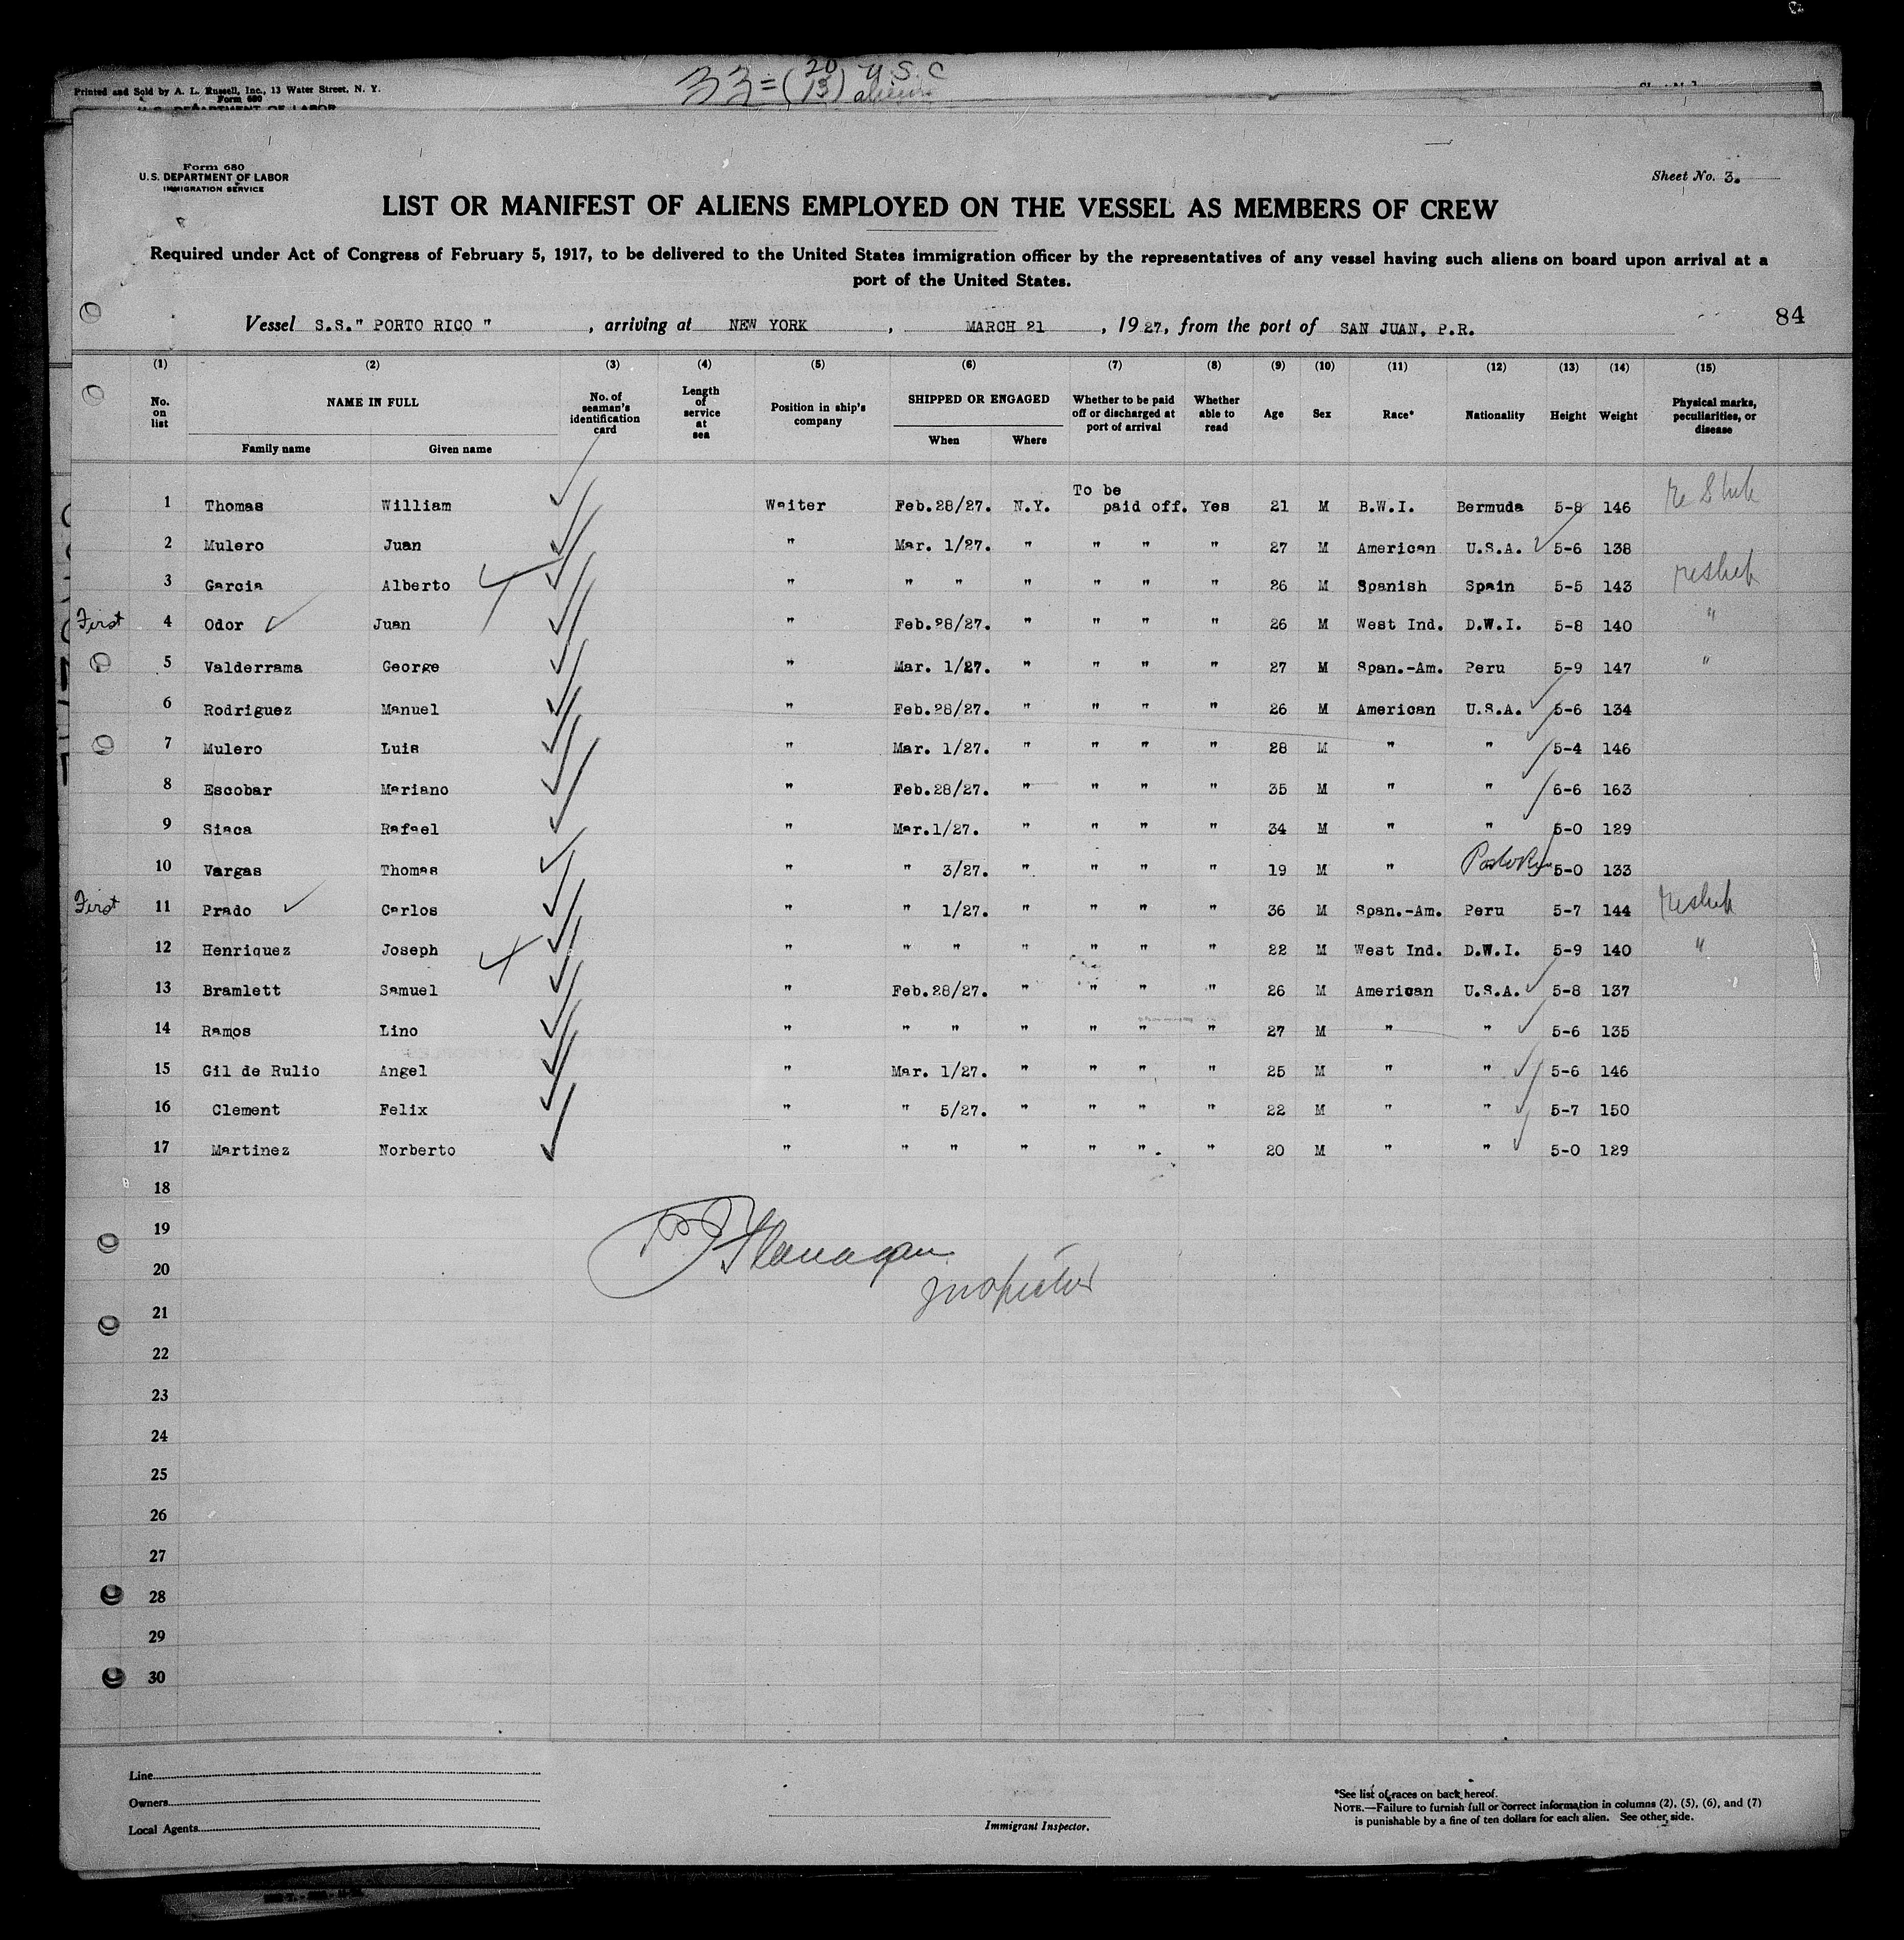 33 = ( 20 U.S.C
13 ) aliens
Printed and Sold by A. L. Russell, Inc., 13 Water Street, N. Y.
Form 680
U.S. DEPARTMENT OF LABOR
Form 680
U.S. DEPARTMENT OF LABOR
IMMIGRATION SERVICE
Sheet No. 3.
LIST OR MANIFEST OF ALIENS EMPLOYED ON THE VESSEL AS MEMBERS OF CREW
Required under Act of Congress of February 5, 1917, to be delivered to the United States immigration officer by the representatives of any vessel having such aliens on board upon arrival at a
port of the United States.
Vessel S.S." PORTO RICO " , arriving at NEW YORK , MARCH 21 , 1927, from the port of SAN JUAN, P.R.
84
(1) (2) (3) (4) (5) (6) (7) (8) (9) (10) (11) (12) (13) (14) (15)
No. on list NAME IN FULL No. of seaman's identification card Length of service at sea Position in ship's company SHIPPED OR ENGAGED Whether to be paid off or discharged at port of arrival Whether able to read Age Sex Race* Nationality Height Weight Physical marks, peculiarities, or disease
Family name Given name When Where
1 Thomas William Waiter Feb.28/27. N.Y. To be paid off. Yes 21 M B.W.I. Bermuda 5-8 146
2 Mulero Juan " Mar. 1/27. " " " " 27 M American U.S.A. 5-6 138
3 Garcia Alberto " " " " " " " 26 M Spanish Spain 5-5 143
First 4 Odor Juan " Feb.28/27. " " " " 26 M West Ind. D.W.I. 5-8 140 "
5 Valderrama George " Mar. 1/27. " " " " 27 M Span.-Am. Peru 5-9 147 "
6 Rodriguez Manuel " Feb.28/27. " " " " 26 M American U.S.A. 5-6 134
7 Mulero Luis " Mar. 1/27. " " " " 28 M " " 5-4 146
8 Escobar Mariano " Feb.28/27. " " " " 35 M " " 6-6 163
9 Siaca Rafael " Mar.1/27. " " " " 34 M " " 5-0 129
10 Vargas Thomas " " 3/27. " " " " 19 M " 5-0 133
First 11 Prado Carlos " " 1/27. " " " " 36 M Span.-Am. Peru 5-7 144
12 Henriquez Joseph " " " " " " " 22 M West Ind. D.W.I. 5-9 140 "
13 Bramlett Samuel " Feb.28/27. " " " " 26 M American U.S.A. 5-8 137
14 Ramos Lino " " " " " " " 27 M " " 5-6 135
15 Gil de Rulio Angel " Mar. 1/27. " " " " 25 M " " 5-6 146
16 Clement Felix " " 5/27. " " " " 22 M " " 5-7 150
17 Martinez Norberto " " " " " " " 20 M " " 5-0 129
18
19
Flanagan
20
Inspector
21
22
23
24
25
26
27
28
29
30
Line
Owners
Local Agents
Immigrant Inspector.
*See list of races on back hereof.
NOTE.—Failure to furnish full or correct information in columns (2), (5), (6), and (7)
is punishable by a fine of ten dollars for each alien. See other side.